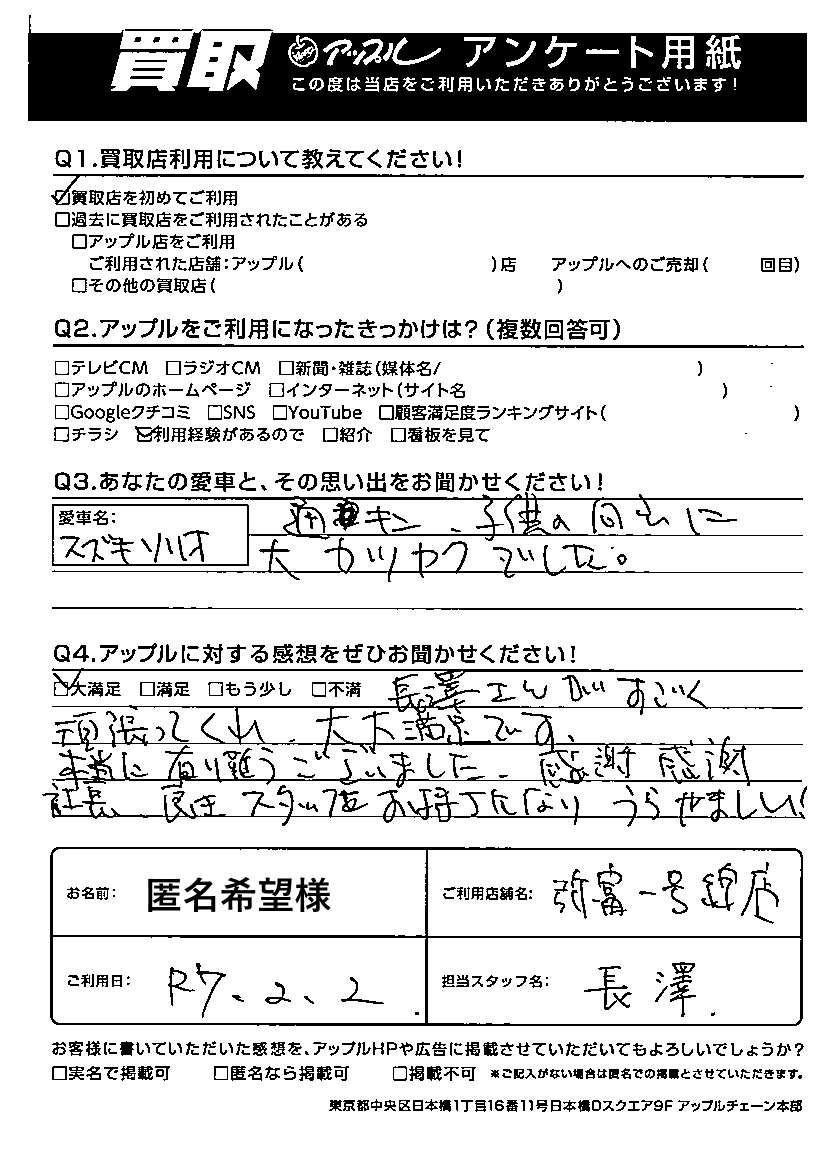 買取 アップル アンケート用紙
この度は当店をご利用いただきありがとうございます!
Q1.買取店利用について教えてください!
☑買取店を初めてご利用
□過去に買取店をご利用されたことがある
□アップル店をご利用
ご利用された店舗:アップル( )店 アップルへのご売却( 回目)
□その他の買取店( )
Q2.アップルをご利用になったきっかけは?(複数回答可)
□テレビCM □ラジオCM □新聞・雑誌(媒体名/ )
□アップルのホームページ □インターネット(サイト名 )
□Googleクチコミ □SNS □YouTube □顧客満足度ランキングサイト( )
□チラシ ☑利用経験があるので □紹介 □看板を見て
Q3.あなたの愛車と、その思い出をお聞かせください!
愛車名:
スズキソリオ
通キン、子供の
大カツヤクでした。
Q4.アップルに対する感想をぜひお聞かせください!
☑大満足 □満足 □もう少し □不満 長澤さんがすごく
頑張ってくれ、大大満足です。
本当に有り難うございました。感謝感謝
社長、良きスタッフをお持ちになり うらやましい!
お名前: 匿名希望様
ご利用店舗名: 弥富一号線店
ご利用日: R7.2.2
担当スタッフ名: 長澤
お客様に書いていただいた感想を、アップルHPや広告に掲載させていただいてもよろしいでしょうか?
□実名で掲載可 □匿名なら掲載可 □掲載不可 ※ご記入がない場合は匿名での掲載とさせていただきます。
東京都中央区日本橋1丁目16番11号日本橋Dスクエア9F アップルチェーン本部